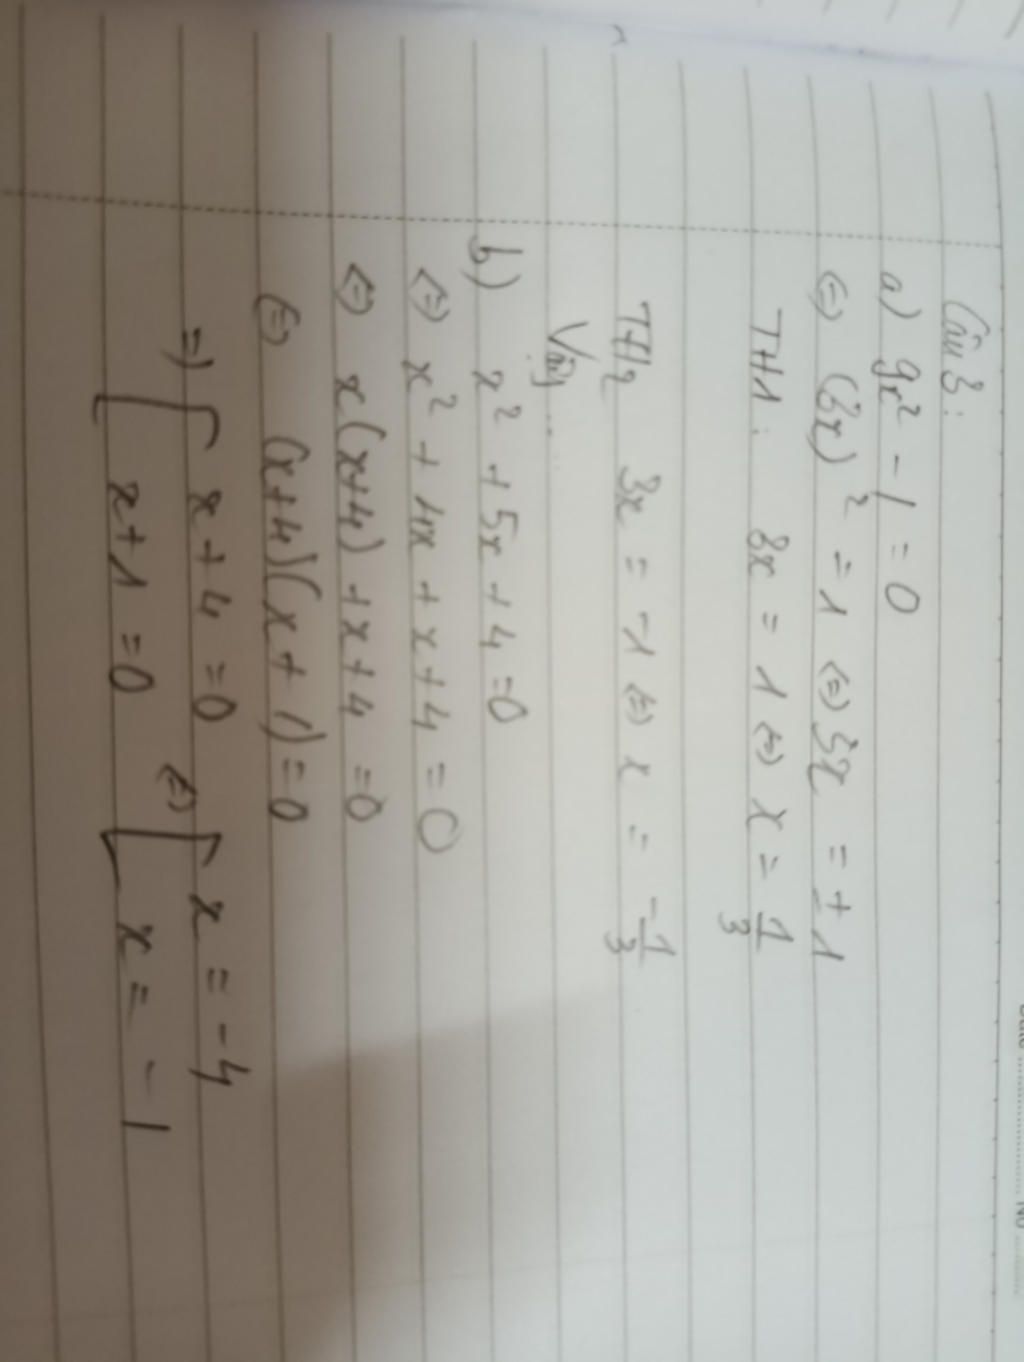 Câu 3:
a) 9x² - 1 = 0
⇔ (3x)² = 1 ⇔ 3x = ± 1
TH1: 3x = 1 ⇔ x = 1/3
TH2 3x = -1 ⇔ x = -1/3
Vậy...
b) x² + 5x + 4 = 0
⇔ x² + 4x + x + 4 = 0
⇔ x(x+4) + x + 4 = 0
⇔ (x+4)(x+1) = 0
⇒ [ x + 4 = 0 ⇔ [ x = -4
x + 1 = 0 x = -1